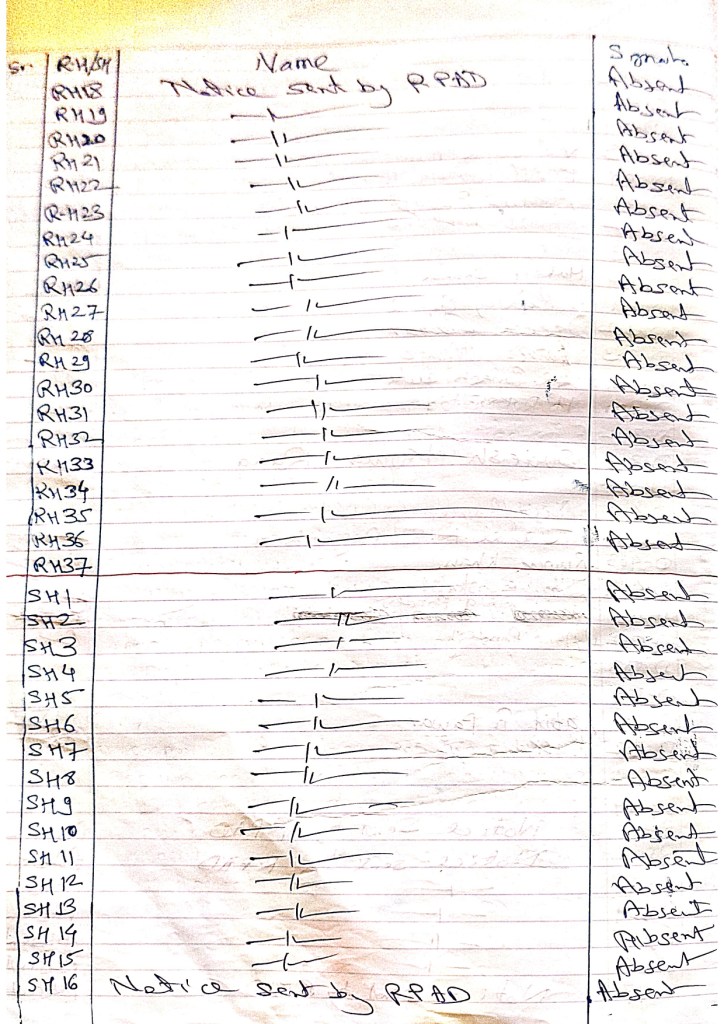 Sr. RH/SH Name Signatu.
RH18 Notice sent by RPAD Absent
RH19 —"— Absent
RH20 —"— Absent
RH21 —"— Absent
RH22 —"— Absent
RH23 —"— Absent
RH24 —"— Absent
RH25 —"— Absent
RH26 —"— Absent
RH27 —"— Absent
RH28 —"— Absent
RH29 —"— Absent
RH30 —"— Absent
RH31 —"— Absent
RH32 —"— Absent
RH33 —"— Absent
RH34 —"— Absent
RH35 —"— Absent
RH36 —"— Absent
RH37
SH1 —"— Absent
SH2 —"— Absent
SH3 —"— Absent
SH4 —"— Absent
SH5 —"— Absent
SH6 —"— Absent
SH7 —"— Absent
SH8 —"— Absent
SH9 —"— Absent
SH10 —"— Absent
SH11 —"— Absent
SH12 —"— Absent
SH13 —"— Absent
SH14 —"— Absent
SH15 —"— Absent
SH16 Notice sent by RPAD Absent